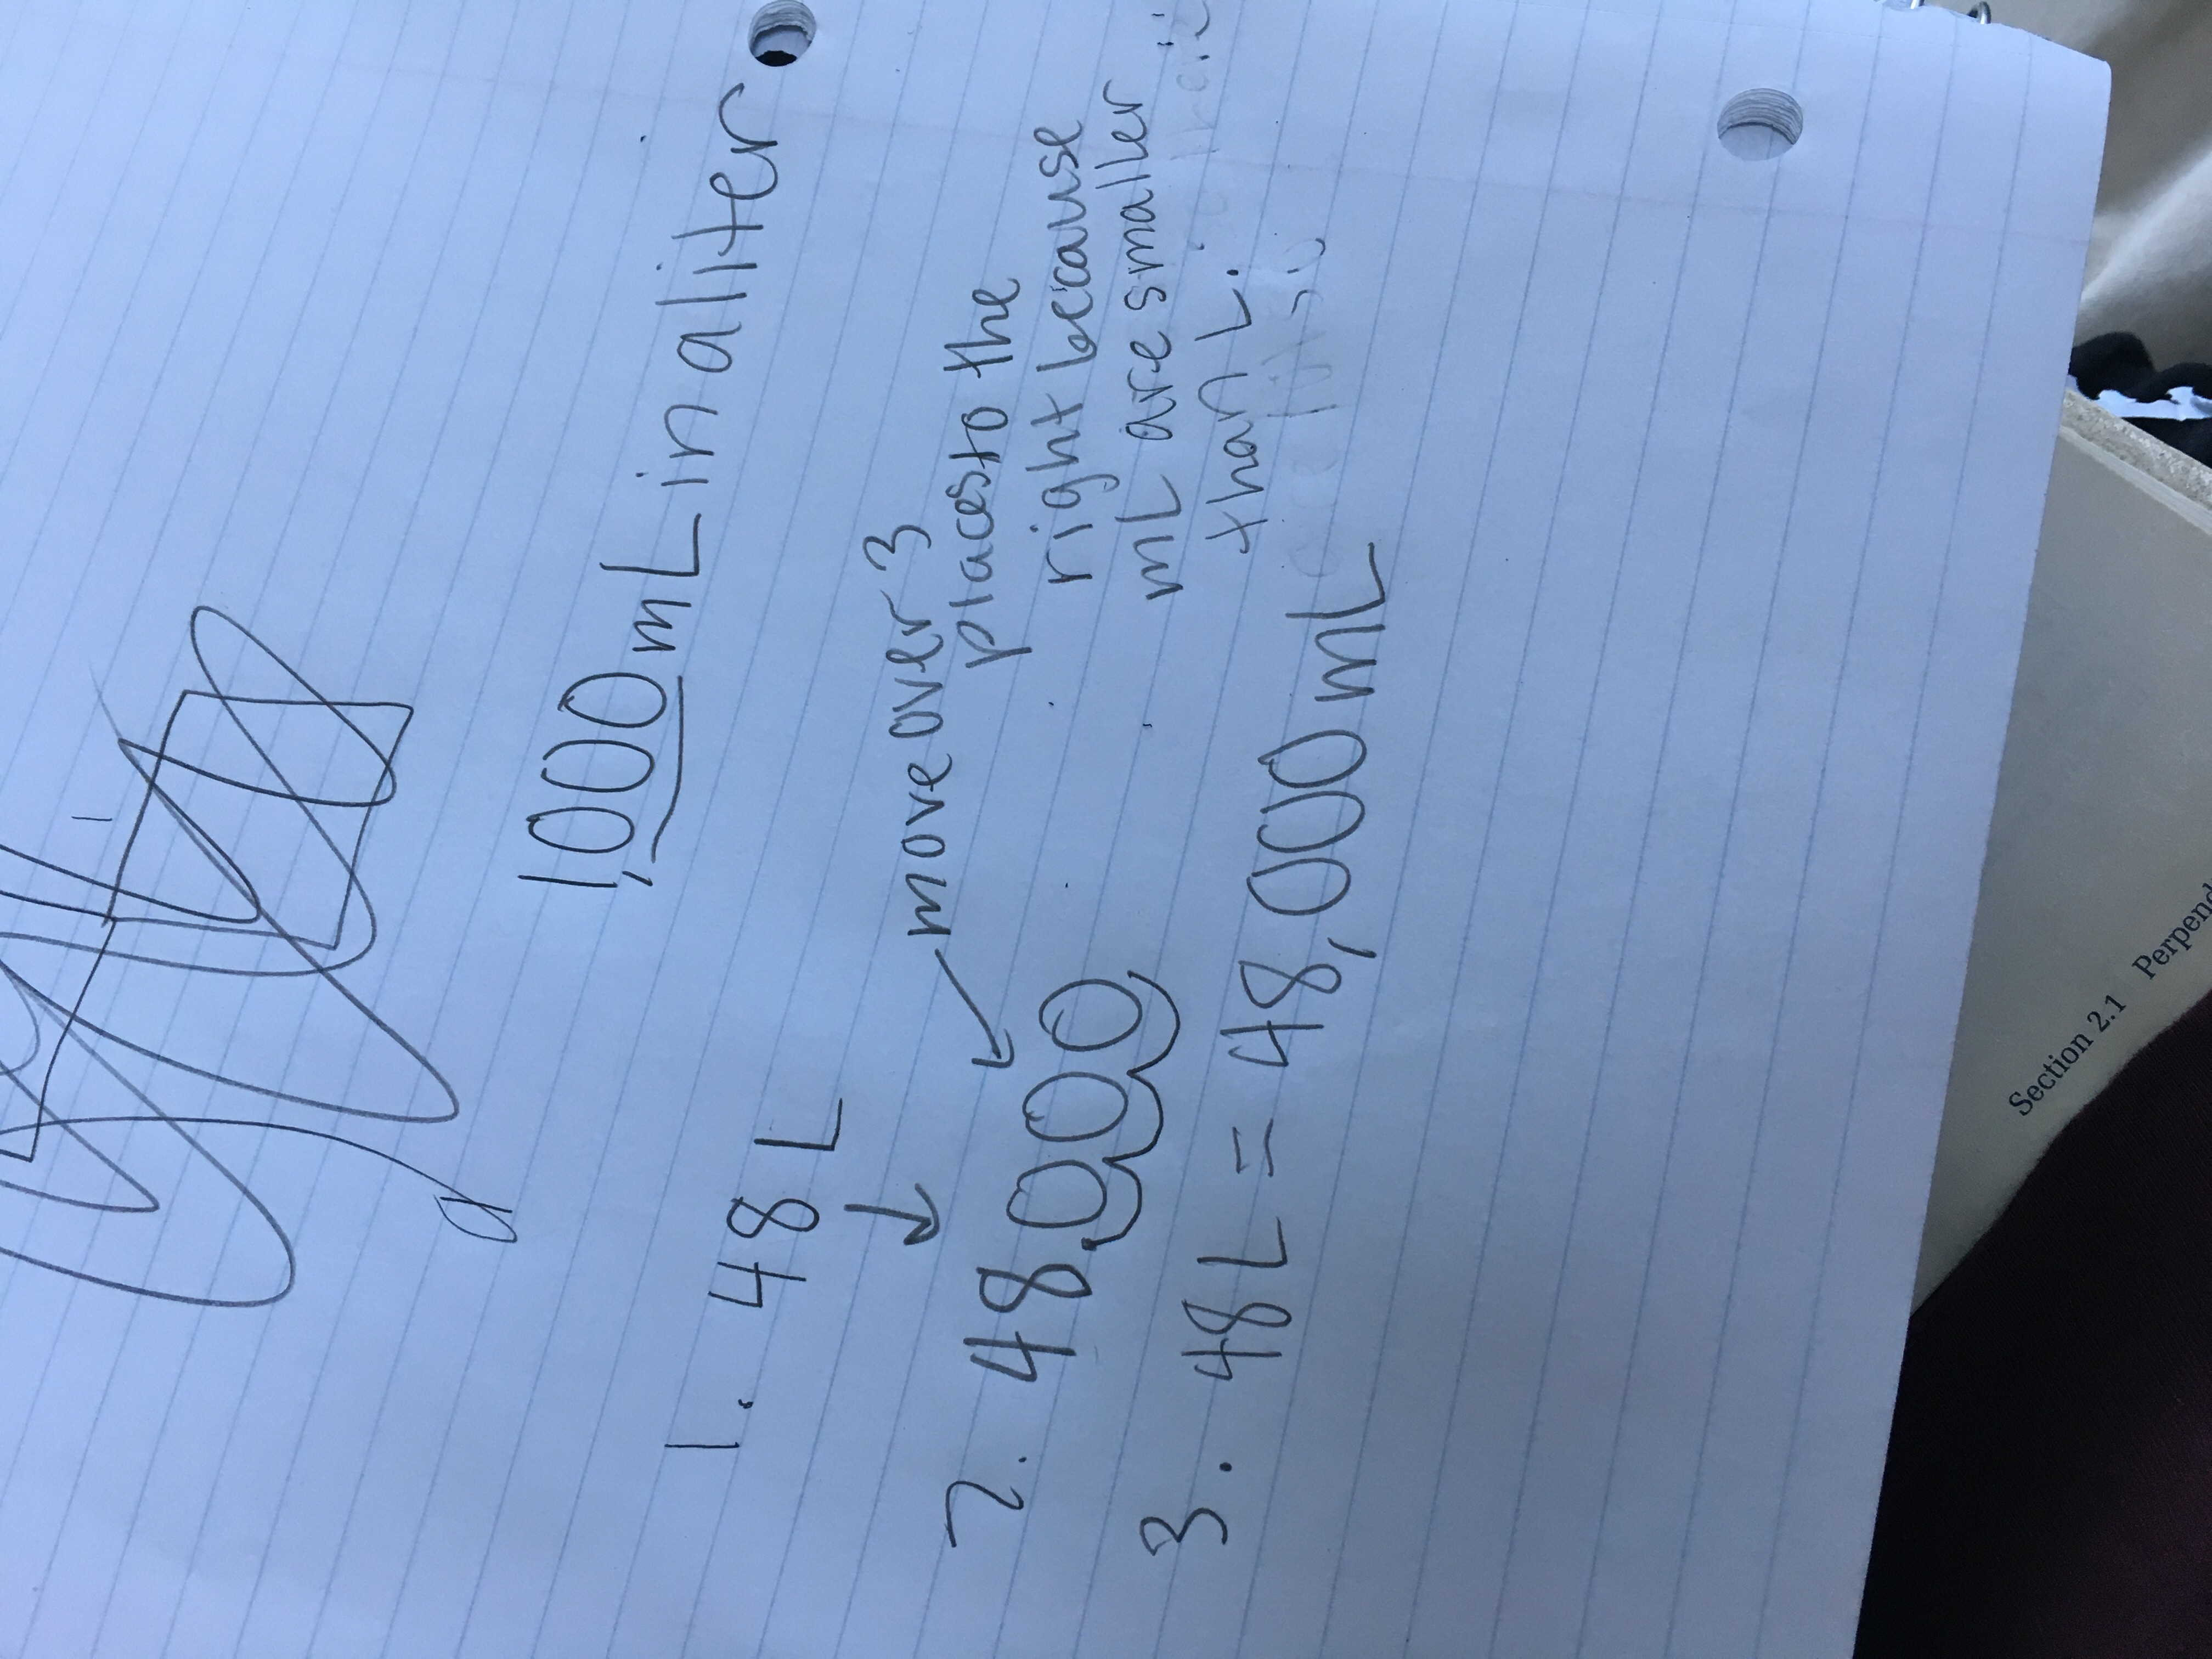 1,000 mL in a liter
1. 48 L
move over 3
places to the
right because
mL are smaller
than L.
2. 48.000
3. 48L = 48,000 mL
Section 2.1